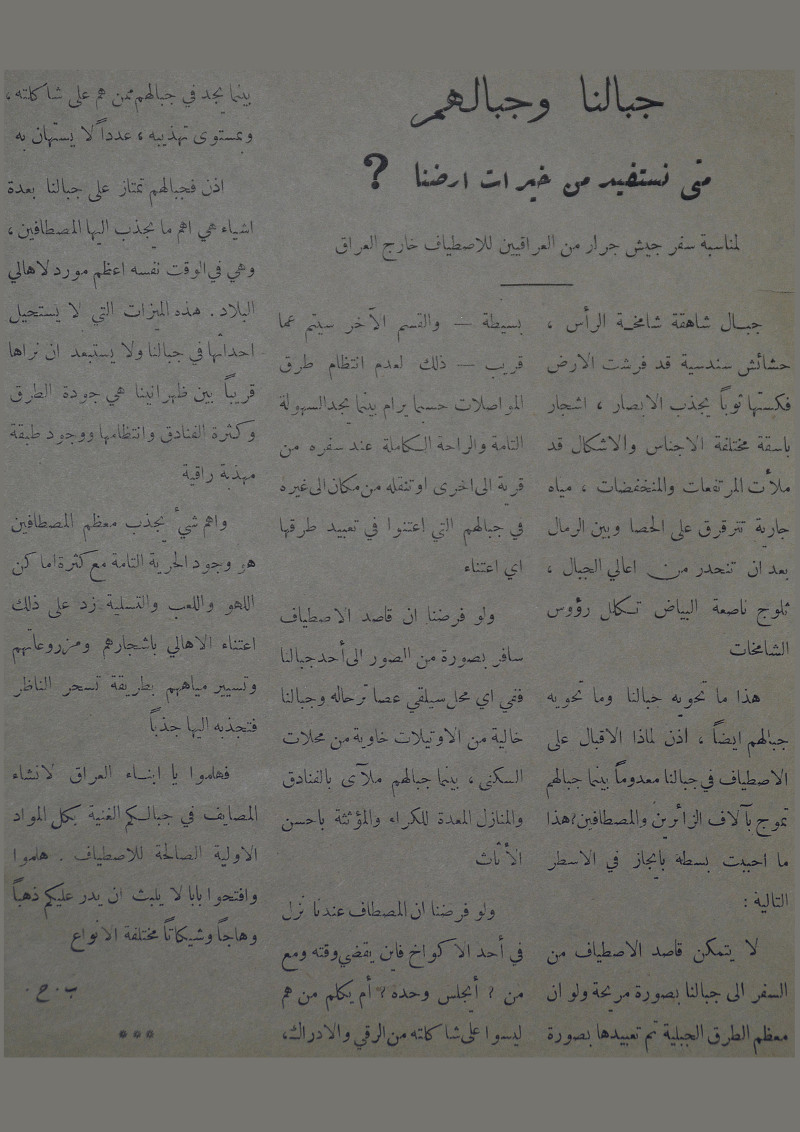 جبالنا وجبالهم
متى نستفيد من خيرات ارضنا ؟
لمناسبة سفر جيش جرار من العراقيين للاصطياف خارج العراق
جبال شاهقة شامخة الرأس ،
حشائش سندسية قد فرشت الارض
فكستها ثوباً يجذب الابصار ، اشجار
باسقة مختلفة الاجناس والاشكال قد
ملأت المرتفعات والمنخفضات ، مياه
جارية تترقرق على الحصا وبين الرمال
بعد ان تنحدر من اعالي الجبال ،
ثلوج ناصعة البياض تكلل رؤوس
الشامخات
هذا ما تحويه جبالنا وما تحويه
جبالهم ايضاً ، اذن لماذا الاقبال على
الاصطياف في جبالنا معدوماً بينما جبالهم
تموج بآلاف الزائرين والمصطافين ؟ هذا
ما احببت بسطه بايجاز في الاسطر
التالية :
لا يتمكن قاصد الاصطياف من
السفر الى جبالنا بصورة مريحة ولو ان
معظم الطرق الجبلية تم تعبيدها بصورة
بسيطة — والقسم الآخر سيتم عما
قريب — ذلك لعدم انتظام طرق
المواصلات حسبما يرام بينما يجد السهولة
التامة والراحة الكاملة عند سفره من
قرية الى اخرى او تنقله من مكان الى غيره
في جبالهم التي اعتنوا في تعبيد طرقها
اي اعتناء
ولو فرضنا ان قاصد الاصطياف
سافر بصورة من الصور الى أحد جبالنا
ففي اي محل سيلقي عصا ترحاله وجبالنا
خالية من الاوتيلات خاوية من محلات
السكنى ، بينما جبالهم ملآى بالفنادق
والمنازل المعدة للكراء والمؤثثة باحسن
الأثاث
ولو فرضنا ان المصطاف عندنا نزل
في أحد الاكواخ فاين يقضي وقته ومع
من ؟ أيجلس وحده ؟ أم يكلم من هم
ليسوا على شاكلته من الرقي والادراك،
بينما يجد في جبالهم ممن هم على شاكلته ،
وبمستوى تهذيبه ، عدداً لا يستهان به
اذن فجبالهم تمتاز على جبالنا بعدة
اشياء هي اهم ما يجذب اليها المصطافين ،
وهي في الوقت نفسه اعظم مورد لاهالي
البلاد . هذه الميزات التي لا يستحيل
احداثها في جبالنا ولا يستبعد ان نراها
قريباً بين ظهرانينا هي جودة الطرق
وكثرة الفنادق وانتظامها ووجود طبقة
مهذبة راقية
واهم شيء يجذب معظم المصطافين
هو وجود الحرية التامة مع كثرة اماكن
اللهو واللعب والتسلية زد على ذلك
اعتناء الاهالي باشجارهم ومزروعاتهم
وتسيير مياههم بطريقة تسحر الناظر
فتجذبه اليها جذباً
فهاموا يا ابناء العراق لانشاء
المصايف في جبالكم الغنية بكل المواد
الاولية الصالحة للاصطياف . هاموا
وافتحوا بابا لا يلبث ان يدر عليكم ذهباً
وهاجاً وشيكاتاً مختلفة الانواع
ب . ح .
***